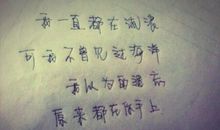 我一直都在流浪
可我不曾见过海洋
我以为的遥远
原来都在你手上